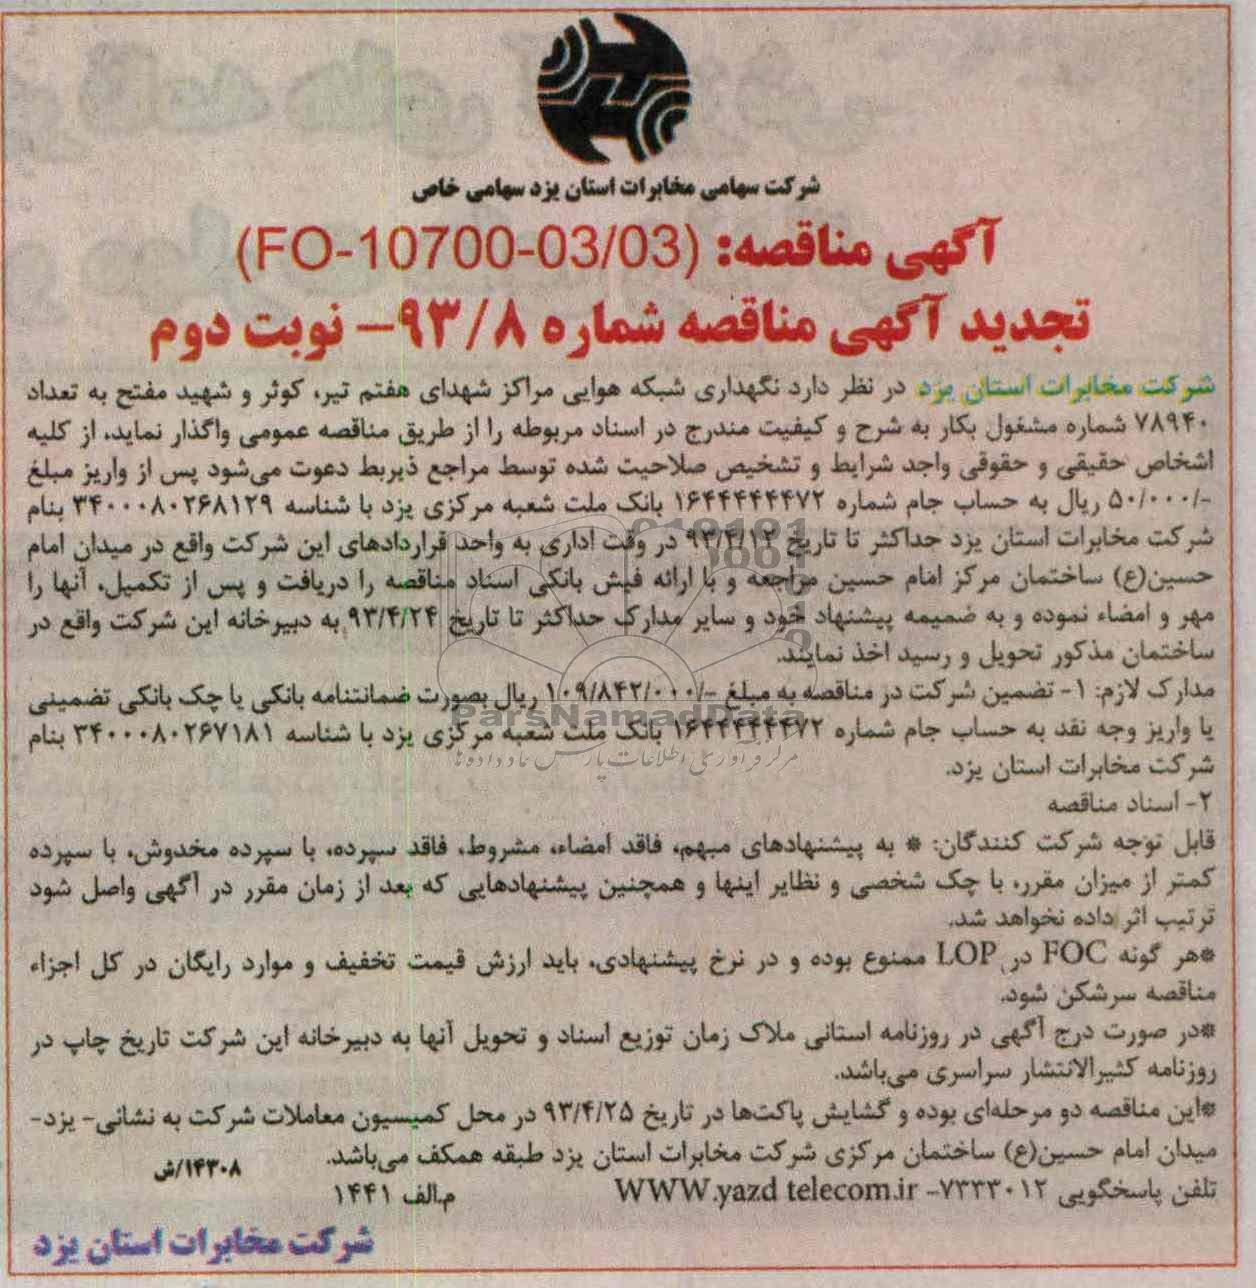 شرکت سهامی مخابرات استان یزد سهامی خاص
آگهی مناقصه: (FO-10700-03/03)
تجدید آگهی مناقصه شماره ۹۳/۸– نوبت دوم
شرکت مخابرات استان یزد در نظر دارد نگهداری شبکه هوایی مراکز شهدای هفتم تیر، کوثر و شهید مفتح به تعداد
۷۸۹۴۰ شماره مشغول بکار به شرح و کیفیت مندرج در اسناد مربوطه را از طریق مناقصه عمومی واگذار نماید، از کلیه
اشخاص حقیقی و حقوقی واجد شرایط و تشخیص صلاحیت شده توسط مراجع ذیربط دعوت می‌شود پس از واریز مبلغ
-/۵۰/۰۰۰ ریال به حساب جام شماره ۱۶۴۴۴۴۴۴۷۲ بانک ملت شعبه مرکزی یزد با شناسه ۳۴۰۰۰۸۰۲۶۸۱۲۹ بنام
شرکت مخابرات استان یزد حداکثر تا تاریخ ۹۳/۴/۱۲ در وقت اداری به واحد قراردادهای این شرکت واقع در میدان امام
حسین(ع) ساختمان مرکز امام حسین مراجعه و با ارائه فیش بانکی اسناد مناقصه را دریافت و پس از تکمیل، آنها را
مهر و امضاء نموده و به ضمیمه پیشنهاد خود و سایر مدارک حداکثر تا تاریخ ۹۳/۴/۲۴ به دبیرخانه این شرکت واقع در
ساختمان مذکور تحویل و رسید اخذ نمایند.
مدارک لازم: ۱- تضمین شرکت در مناقصه به مبلغ -/۱۰۹/۸۴۲/۰۰۰ ریال بصورت ضمانتنامه بانکی یا چک بانکی تضمینی
ParsNamadData
یا واریز وجه نقد به حساب جام شماره ۱۶۴۴۴۴۴۴۷۲ بانک ملت شعبه مرکزی یزد با شناسه ۳۴۰۰۰۸۰۲۶۷۱۸۱ بنام
مرکز فرآوری اطلاعات پارس نماد داده‌ها
شرکت مخابرات استان یزد.
۲- اسناد مناقصه
قابل توجه شرکت کنندگان: * به پیشنهادهای مبهم، فاقد امضاء، مشروط، فاقد سپرده، با سپرده مخدوش، با سپرده
کمتر از میزان مقرر، با چک شخصی و نظایر اینها و همچنین پیشنهادهایی که بعد از زمان مقرر در آگهی واصل شود
ترتیب اثر داده نخواهد شد.
*هر گونه FOC در LOP ممنوع بوده و در نرخ پیشنهادی، باید ارزش قیمت تخفیف و موارد رایگان در کل اجزاء
مناقصه سرشکن شود.
*در صورت درج آگهی در روزنامه استانی ملاک زمان توزیع اسناد و تحویل آنها به دبیرخانه این شرکت تاریخ چاپ در
روزنامه کثیرالانتشار سراسری می‌باشد.
*این مناقصه دو مرحله‌ای بوده و گشایش پاکت‌ها در تاریخ ۹۳/۴/۲۵ در محل کمیسیون معاملات شرکت به نشانی- یزد-
میدان امام حسین(ع) ساختمان مرکزی شرکت مخابرات استان یزد طبقه همکف می‌باشد.
۱۴۳۰۸/ش
تلفن پاسخگویی ۷۲۳۳۰۱۲- WWW.yazd telecom.ir
م.الف ۱۴۴۱
شرکت مخابرات استان یزد